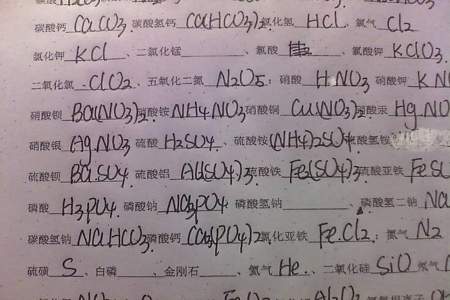 碳酸钙 CaCO3、碳酸氢钙 Ca(HCO3)2 氯化氢 HCl、氯气 Cl2
氯化钾 KCl、二氧化锰______、氯酸______、氯酸钾 KClO3、
二氧化氯 ClO2、五氧化二氮 N2O5；硝酸 HNO3 硝酸钾 KN
硝酸钡 Ba(NO3)2 硝酸铵 NH4NO3 硝酸铜 Cu(NO3)2 硝酸汞 HgNO
硝酸银 AgNO3 硫酸 H2SO4、硫酸铵 (NH4)2SO4 硫酸氢铵
硫酸钡 BaSO4 硫酸铝 Al(SO4)3 硫酸铁 Fe3(SO4)3 硫酸亚铁 FeSO
磷酸 H3PO4 磷酸钠 Na3PO4 磷酸氢钠______、磷酸氢二钠 Na
碳酸氢钠 NaHCO3 磷酸钙 Ca3(PO4)2 氯化亚铁 FeCl2；氮气 N2
硫磺 S、白磷______、金刚石______、氦气 He、二氧化硅 SiO